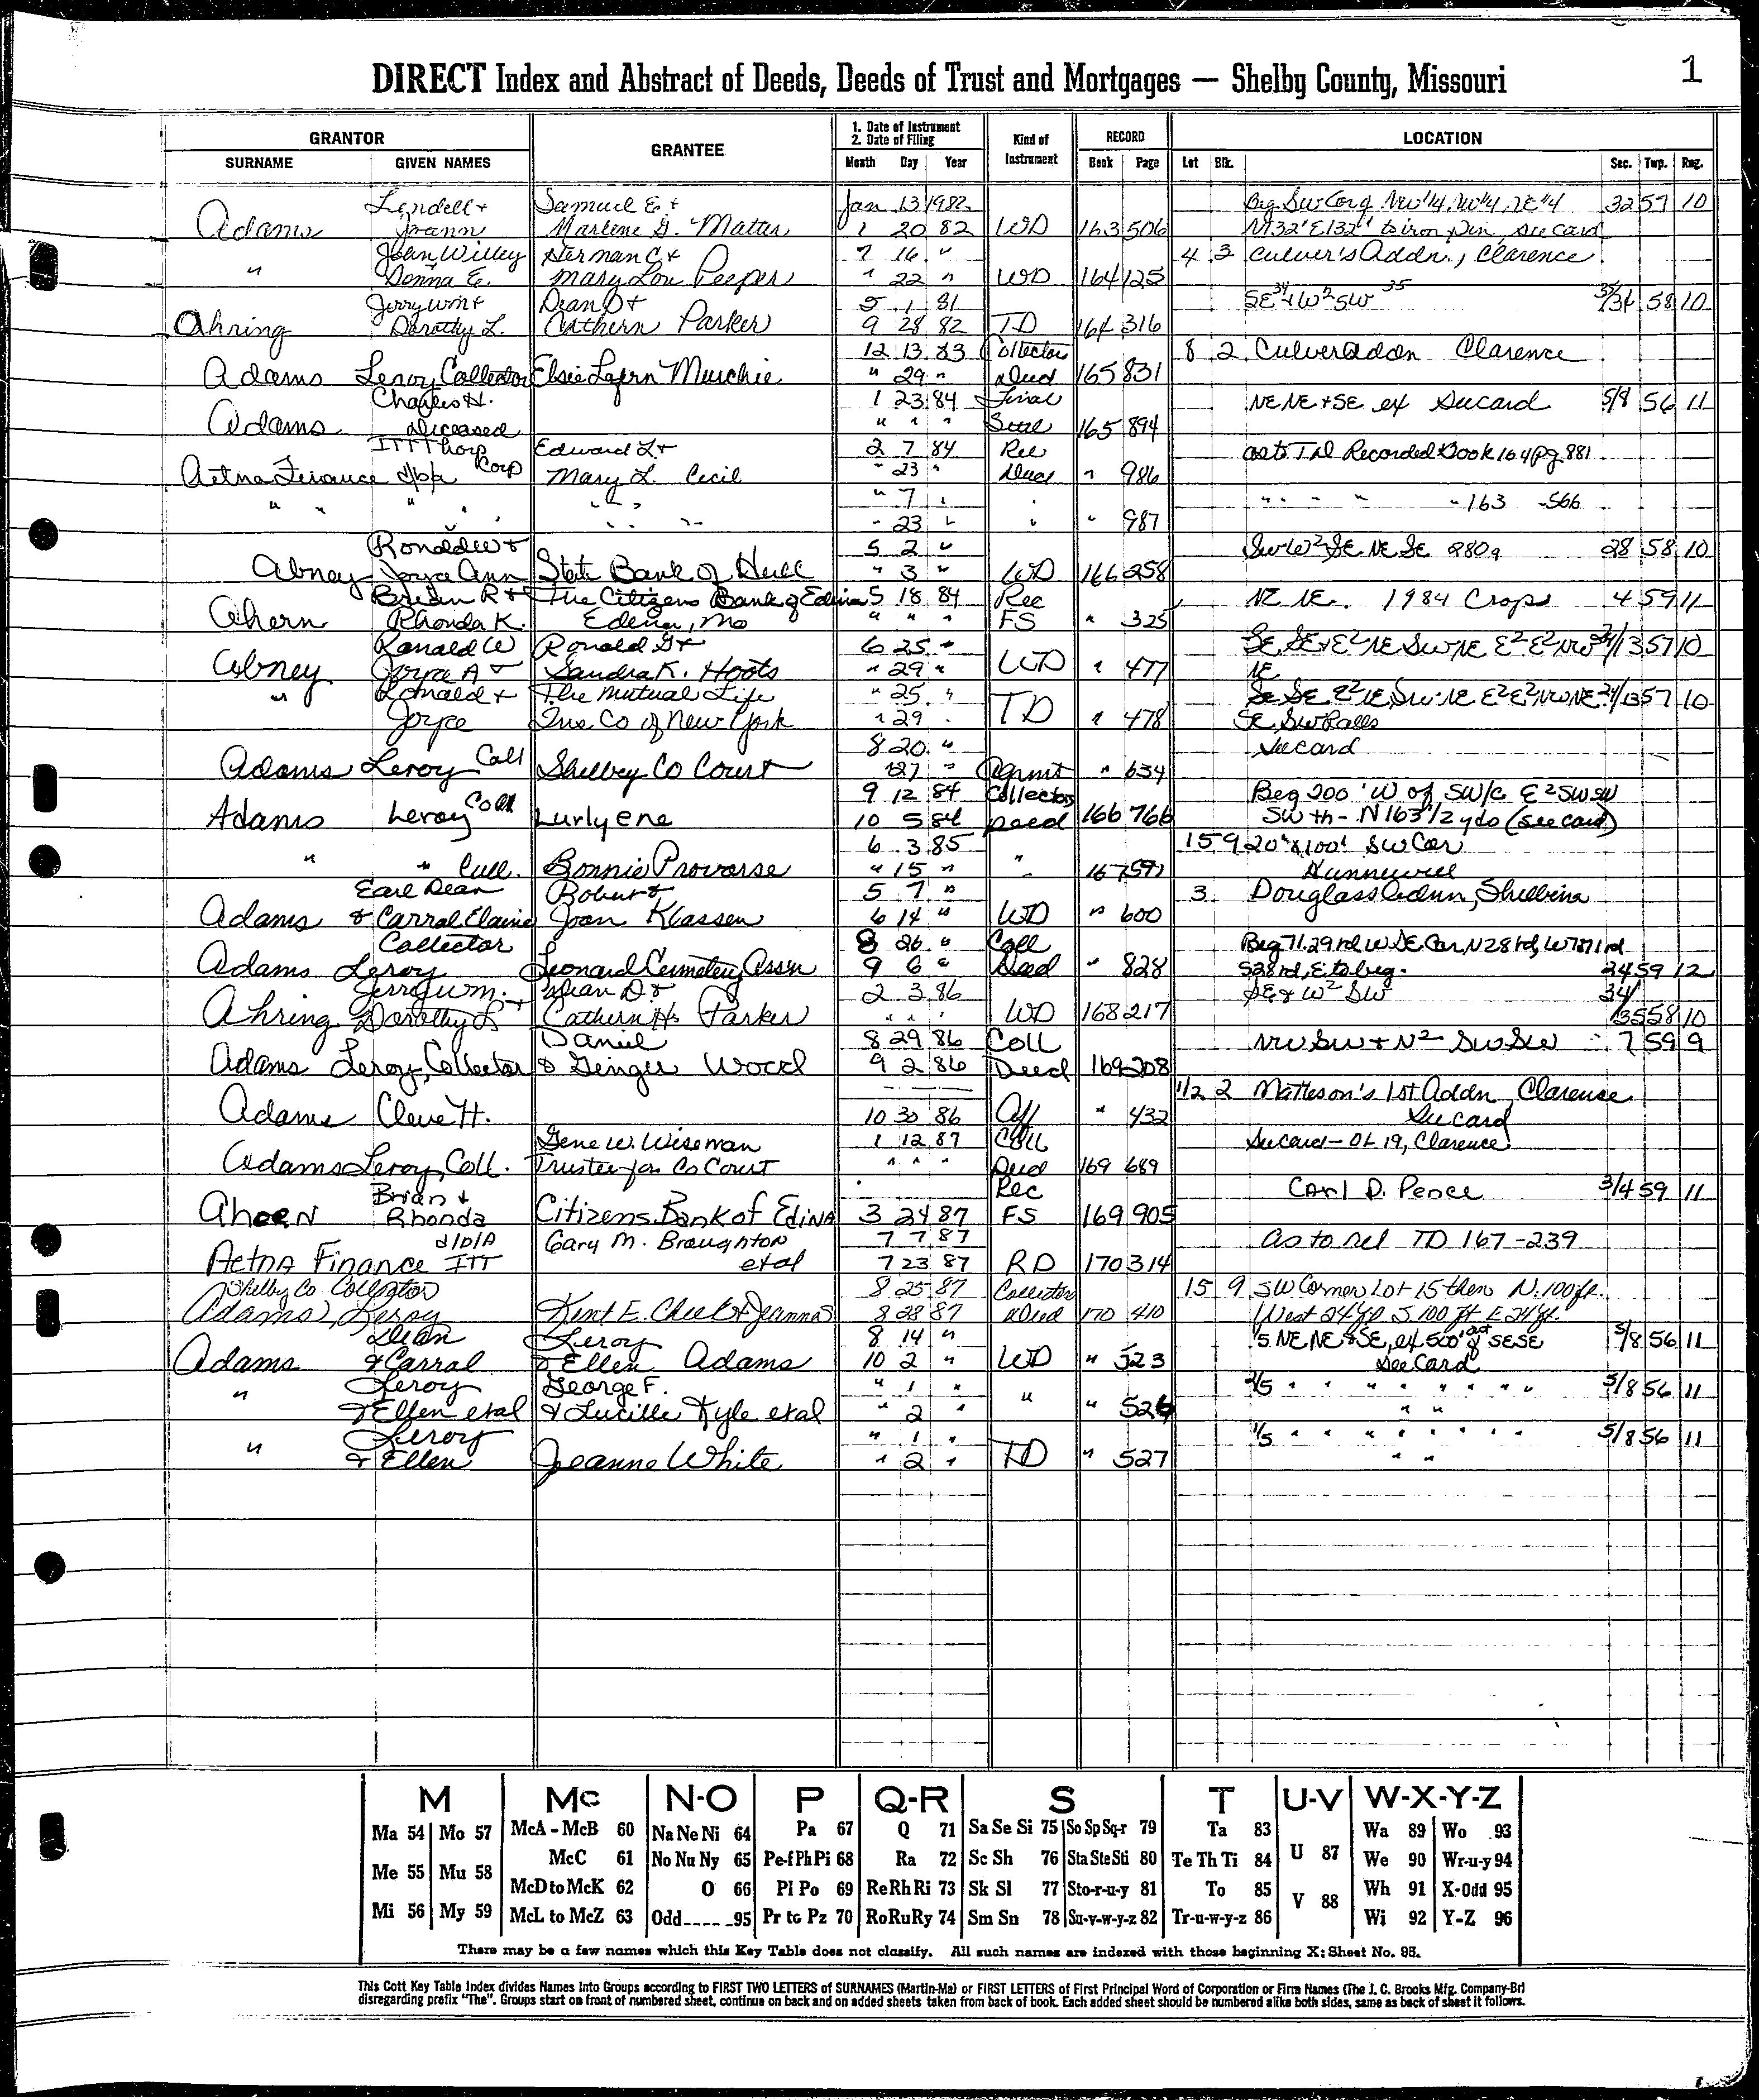 DIRECT Index and Abstract of Deeds, Deeds of Trust and Mortgages — Shelby County, Missouri 1
GRANTOR GRANTEE 1. Date of Instrument 2. Date of Filing Kind of Instrument RECORD LOCATION
SURNAME GIVEN NAMES Month Day Year Book Page Lot Blk. Sec. Twp. Rng.
Lendell + Samuel E + Jan 13 1982 Beg SW Cor of NW 1/4, NW 1/4, NE 1/4 32 57 10
Adams Joann Marlene G. Matter 1 20 82 WD 163 506 N132' E132' to iron pin, see card
John Willey Herman C + 7 16 " 4 3 Culver's Addn., Clarence
" Donna E. Mary Lou Peeper " 22 " WD 164 125
Jerry Wm + Dean D + 5 1 81 SE 34 + W2 SW 35 35/34 58 10
Ahring Dorothy L. Cathern Parker 9 28 82 TD 164 316
12 13 83 Collector 8 2 Culver Addn Clarence
Adams Leroy Collector Elsie Murchie " 29 " Deed 165 831
Charles H. 1 23 84 Final NE NE + SE ex See card 5/8 56 11
Adams deceased " " " Settl 165 894
ITT Thorp Edward L + 2 7 84 Rel as to TD Recorded Book 164 pg 881
Aetna Finance d/b/a Corp Mary L. Cecil " 23 " Deed " 986
" " " " " " " 7 " " " " " " " 163 - 566
" 23 " " " 987
Ronald W + 5 2 " SW W2 SE NE SE 280 a 28 58 10
Abney Joyce Ann State Bank of Hull " 3 " WD 166 258
Brian R + The Citizens Bank of Edina 5 18 84 Rec NE NE. 1984 Crops 4 59 11
Ahern Rhonda K. Edina, Mo " " " FS " 325
Ronald W Ronald G + 6 25 " SE SE + E2 NE SW NE E2 E2 NW 24/13 57 10
Abney Joyce A + Sandra K. Hoots " 29 " WD " 477 NE
" Ronald + The Mutual Life " 25 " SE SE E2 NE SW NE E2 E2 NW NE 24/13 57 10
Joyce Ins Co of New York " 29 " TD " 478 SE SW Ralls
8 20 " See card
Adams Leroy Coll Shelby Co Court " 27 " Agrmt " 634
9 12 84 Collectors Beg 200' W of SW/c E2 SW SW
Adams Leroy Coll Lurlyene 10 5 84 Deed 166 766 SW th- N 163 1/2 yds (see card)
6 3 85 15 9 20' x 100' SW Cor
" " Coll. Bonnie Provorse " 15 " " 167 597 Hunnewell
Earl Dean Robert + 5 7 " 3 Douglass Addn, Shelbina
Adams + Carral Elaine Joan Klassen 6 14 " WD " 600
Collector 8 26 " Coll Beg 71.29 rd W SE Cor, N 28 rd, W 7.871 rd
Adams Leroy Leonard Cemetery Assn 9 6 " Deed " 828 S 28 rd, E to beg. 24 59 12
Jerry Wm. Dean D + 2 3 86 SE + W2 SW 34/
Ahring Dorothy L + Cathern H. Parker " " " WD 168 217 35 58 10
Daniel 8 29 86 Coll NW SW + N2 SW SW 7 59 9
Adams Leroy, Collector & Ginger Wood 9 2 86 Deed 169 208
1/2 2 Matteson's 1st Addn, Clarence
Adams Cleve H. 10 30 86 Aff " 432 See card
Gene W. Wiseman 1 12 87 Coll See card - OL 19, Clarence
Adams Leroy, Coll. Trustee for Co Court " " " Deed 169 689
Brian + Rec Carl D. Pence 3/4 59 11
Ahern Rhonda Citizens Bank of Edina 3 24 87 FS 169 905
d/b/a Gary M. Broughton 7 7 87 As to rel TD 167-239
Aetna Finance ITT etal 7 23 87 RD 170 314
Shelby Co Collector 8 25 87 Collector 15 9 SW Corner Lot 15 then N. 100 ft.
Adams, Leroy Kent E. Cheek & Jeanna S 8 28 87 Deed 170 410 West 24 ft S 100 ft E 24 ft.
Dean Leroy 8 14 " 1/5 NE, NE & SE, ex 500' of SE SE 5/8 56 11
Adams & Carral & Ellen Adams 10 2 " WD " 523 See Card
" Leroy George F. " 1 " 2/5 " " " " " " " 5/8 56 11
& Ellen etal & Lucille Kyle etal " 2 " " " 526 " "
" Leroy " 1 " 1/5 " " " " " " " 5/8 56 11
& Ellen Jeanne White " 2 " TD " 527 " "
M Mc N-O P Q-R S T U-V W-X-Y-Z
Ma 54 Mo 57 McA - McB 60 Na Ne Ni 64 Pa 67 Q 71 Sa Se Si 75 So Sp Sq-r 79 Ta 83 Wa 89 Wo 93
Me 55 Mu 58 McC 61 No Nu Ny 65 Pe-f Ph Pi 68 Ra 72 Sc Sh 76 Sta Ste Sti 80 Te Th Ti 84 U 87 We 90 Wr-u-y 94
McD to McK 62 O 66 Pl Po 69 Re Rh Ri 73 Sk Sl 77 Sto-r-u-y 81 To 85 Wh 91 X-Odd 95
Mi 56 My 59 McL to McZ 63 Odd 95 Pr to Pz 70 Ro Ru Ry 74 Sm Sn 78 Su-v-w-y-z 82 Tr-u-w-y-z 86 V 88 Wi 92 Y-Z 96
There may be a few names which this Key Table does not classify. All such names are indexed with those beginning X; Sheet No. 95.
This Cott Key Table Index divides Names into Groups according to FIRST TWO LETTERS of SURNAMES (Martin-Ma) or FIRST LETTERS of First Principal Word of Corporation or Firm Names (The J. C. Brooks Mfg. Company-Br)
disregarding prefix "The". Groups start on front of numbered sheet, continue on back and on added sheets taken from back of book. Each added sheet should be numbered alike both sides, same as back of sheet it follows.